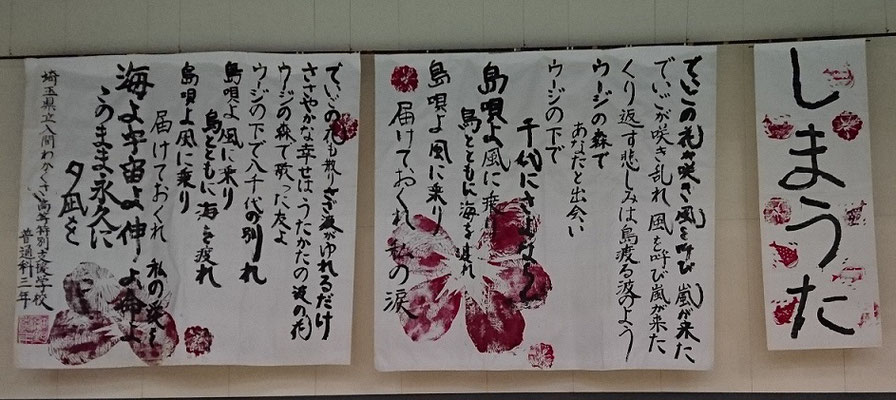 しまうた
でいごの花が咲き風を呼び 嵐が来た
でいごが咲き乱れ 風を呼び嵐が来た
くり返す悲しみは島渡る波のよう
ウージの森で
あなたと出会い
ウージの下で
千代にさよなら
島唄よ風に乗り
鳥とともに海を渡れ
島唄よ 風に乗り
届けておくれ 私の涙
でいごの花も散りさざ波がゆれるだけ
ささやかな幸せは うたかたの波の花
ウージの森で歌った友よ
ウージの下で八千代の別れ
島唄よ 風に乗り
鳥とともに海を渡れ
島唄よ風に乗り
届けておくれ 私の愛を
海よ宇宙よ神よ命よ
このまま永久に
夕凪を
埼玉県立入間わかくさ高等特別支援学校
普通科三年